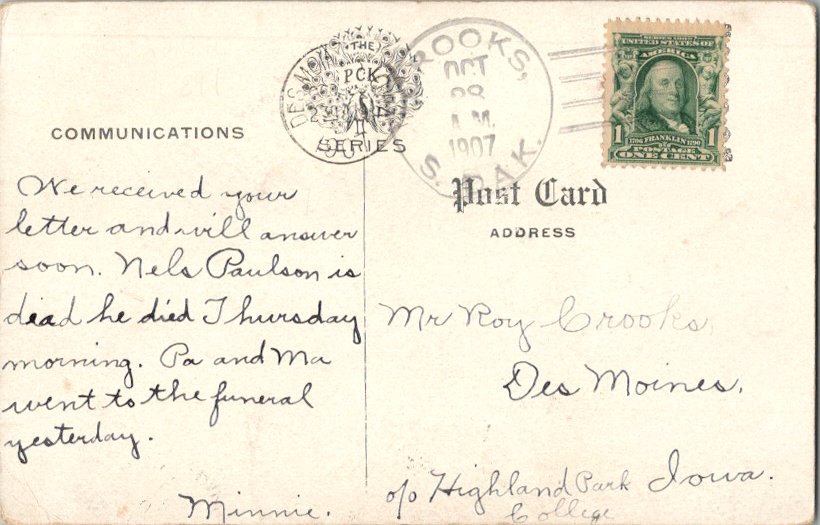 COMMUNICATIONS
THE
PCK
SERIES
DES MOIN
ROOKS,
OCT
28
A.M.
1907
S. DAK.
SERIES 1902
UNITED STATES OF
AMERICA
1 1706 FRANKLIN 1790 1
POSTAGE
ONE CENT
Post Card
ADDRESS
We received your
letter and will answer
soon. Nels Paulson is
dead he died Thursday
morning. Pa and Ma
went to the funeral
yesterday.
Minnie.
Mr Roy Crooks,
Des Moines,
Iowa.
c/o Highland Park
College